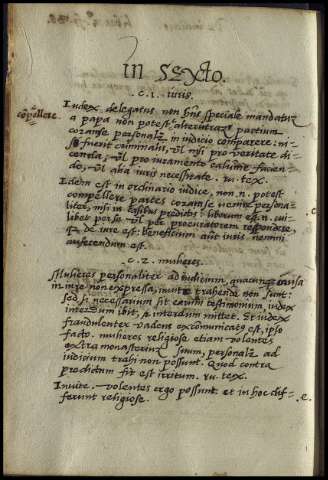 In Sexto.
.c. 1. iuris.
Iudex delegatus non hñs speciale mandatũ
compellere.
a papa non potest alterutraʒ partium
coram se personalʳ in iudicio comparere: ni-
si fuerit criminalis, vl nisi pro veritate di-
cenda; vl pro iuramento calumnie facien-
do; vl alia iuris necessitate. ru. tex.
Idem est in ordinario iudice, non .n. potest
compellere partes coram se venire persona-
liter, nisi in casibus predictis: liberum est .n. cui-
libet per se vl per procuratorem respondere,
de iure est: beneficium aut iuris nemini
auferendum est.
.c. 2. mulieres.
Mulieres personaliter ad iudicium, quacunque causa
in iure non expressa, inuite trahende non sunt:
sed si necessarium sit earum testimonium, iudex
interdum ibit, & interdum mittet. Et iudex
fraudulenter vadens excommunicatus est, ipso
facto. mulieres religiose etiam volentes
extra monasterium suum, personalʳ ad
iudicium trahi non possunt. Quod contra
predictum fit est irritum. ru. tex.
Inuite. volentes ergo possunt. et in hoc dif-
ferunt religiose.